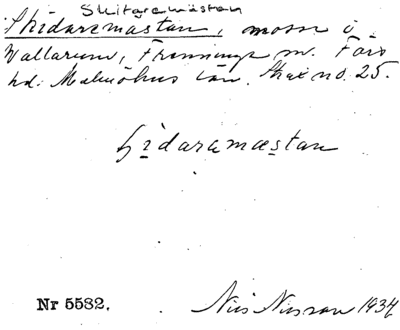 Skitgremåsen
Skidaremastan, mosse i
Wallarum, Frenninge sn. Färs
hd. Malmöhus län. Skat no. 25.
Nr 5582.
Nils Nilsson 1934